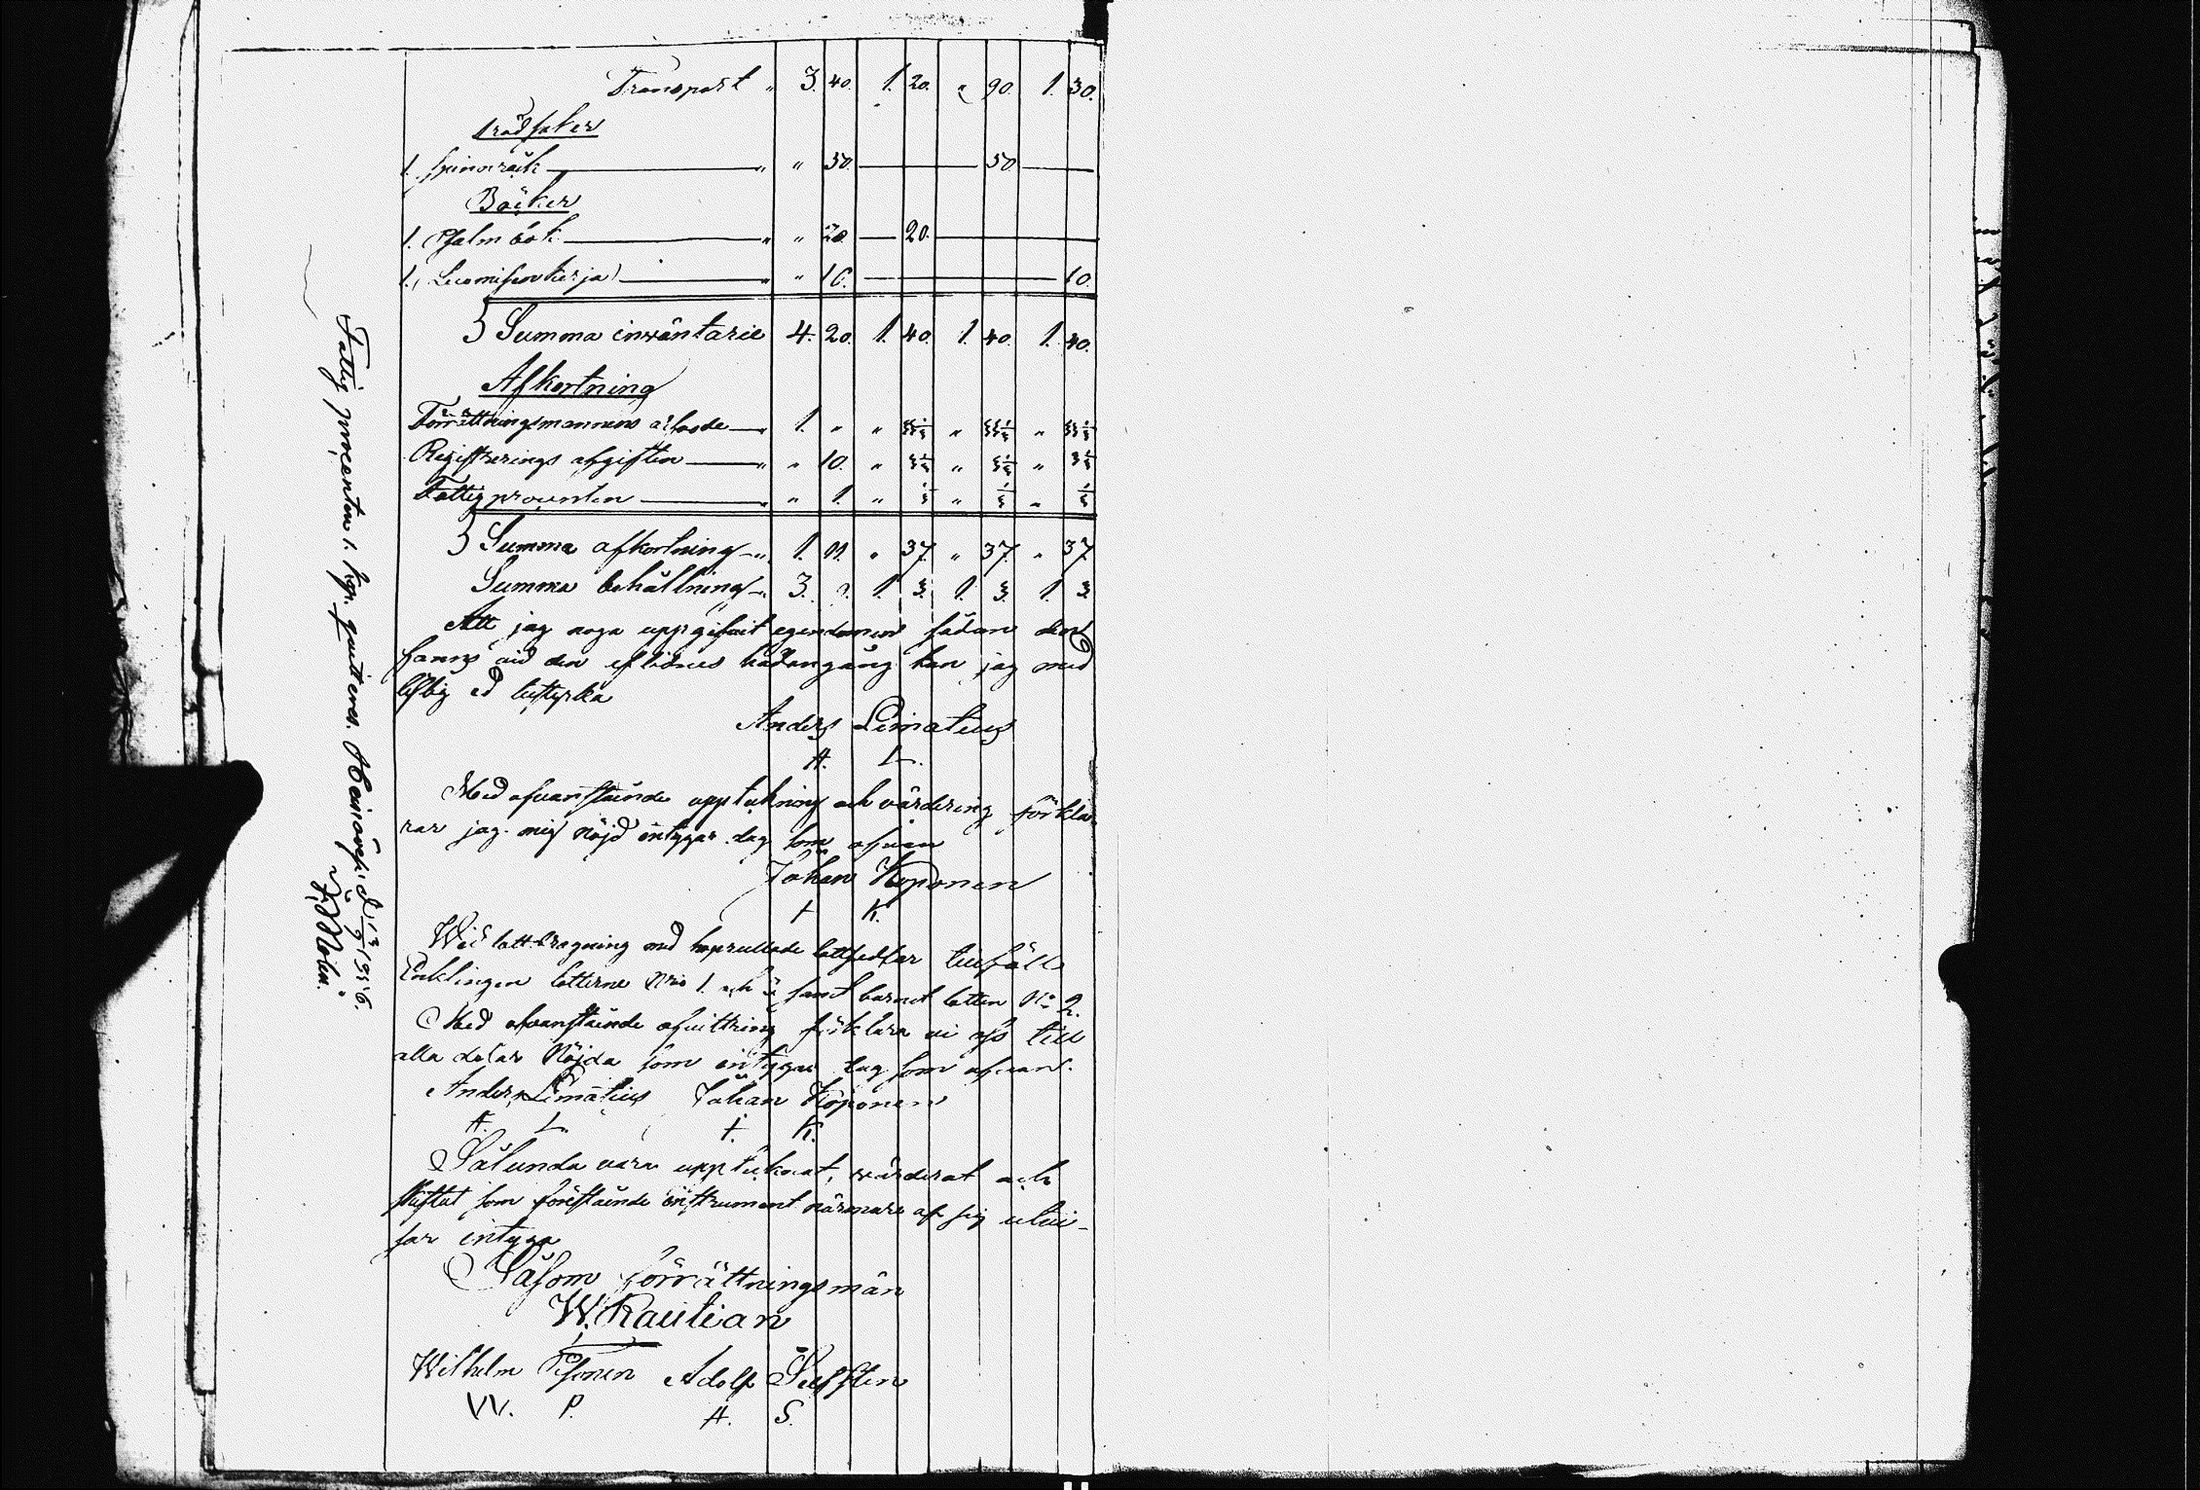 Transport " 3. 40. 1. 20. " 90. 1. 30.
Trädsaker
1. Spinnråck " " 50. 50.
Böcker
1. Psalmbok " " 20. 20.
1. " " 10. 10.
Summa inwäntarie 4. 20. 1. 40. 1. 40. 1. 40.
Afkortning
Förrättningsmannens arfvode 1. " " 33⅓ " 33⅓ " 33⅓
Registrerings afgiften " " 10. " 3⅓ " 3⅓ " 3⅓
Fattigprocenten " " 1. " ⅓ " ⅓ " ⅓
Summa afkortning " 1. 11. " 37. " 37. " 37.
Summa behållning " 3. 9. 1. 3. 1. 3. 1. 3.
Att jag noga uppgifvit egendomen sådan den
fanns vid den aflidnes hädangång kan jag med
liflig ed bestyrka
Anders Limatius
A. L.
Med ofvanstående uppteckning och värdering förkla-
rar jag mig nöjd intygar dag som ofvan
Johan Koponen
J. K.
Wid lottdragning med hoprullade lottsedlar tillföll
Enklingen lotterne Nris 1. och 3 samt barnet lotten No 2.
Med ofvanstående afvittring förklara vi oss till
alla delar Nöjda som intygas dag som ofvan.
Anders Limatius Johan Koponen
A. L. J. K.
Sålunda vara uppteknat, värderat och
skiftat som förestående instrument närmare af sig utvi-
sar intyga
Såsom förrättningsmän
W. Rautian
Wilhelm Pesonen Adolf
W. P. A. S.
Fattig procenten 1. kop. qvitteras.